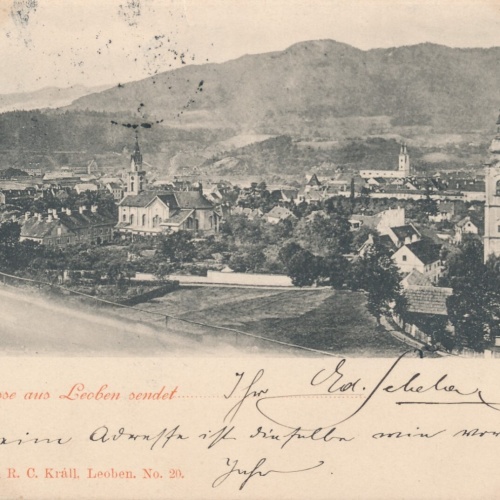 se aus Leoben sendet
Ihr Ed.
meine Adresse ist dieselbe wie vor
Jahr
R. C. Krāll, Leoben. No. 20.